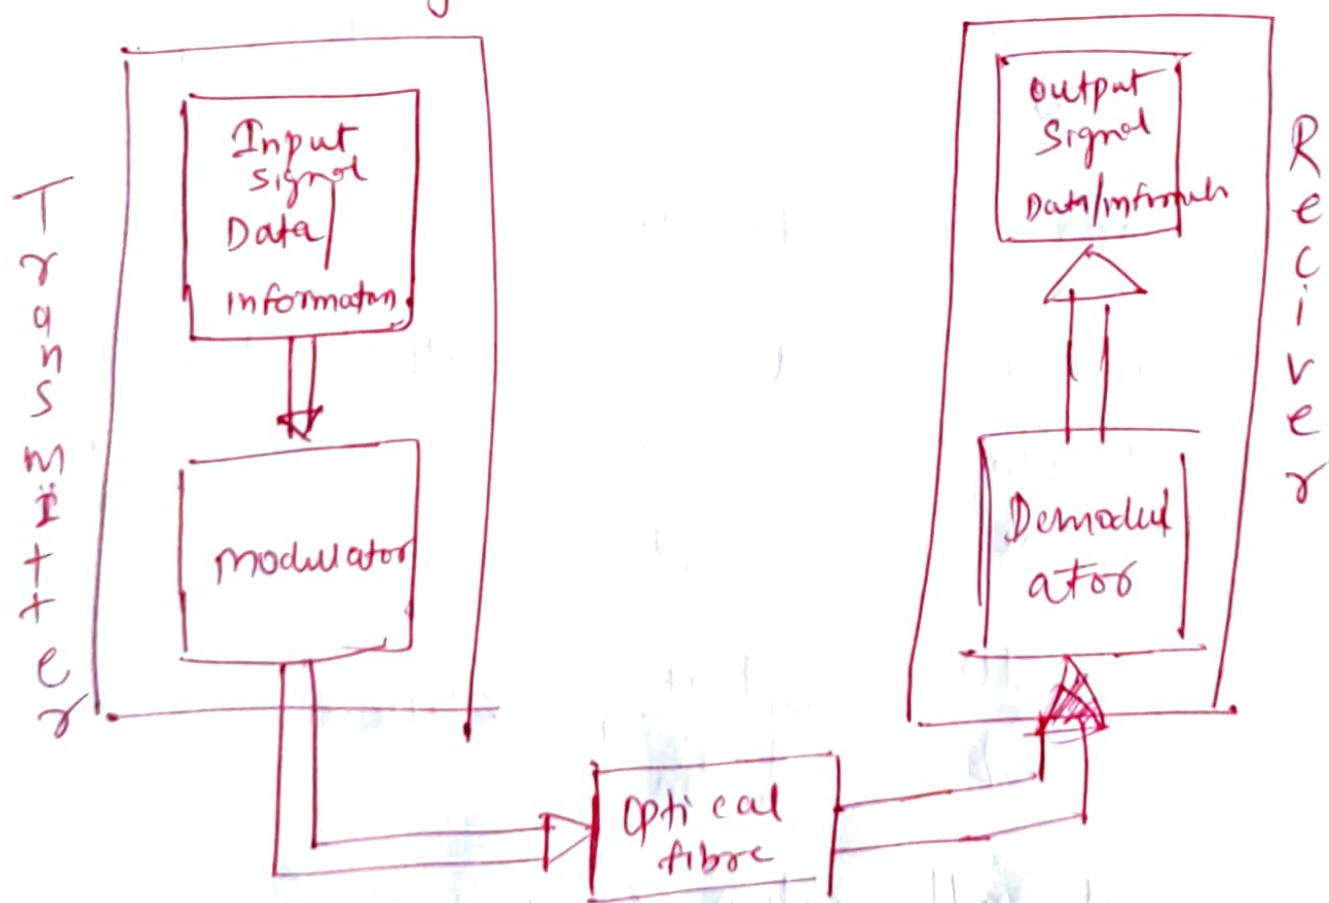 Transmitter
Input
Signal
Data/
Information
Modulator
Optical
fibre
Output
Signal
Data/
Demodul
ator
Reciver